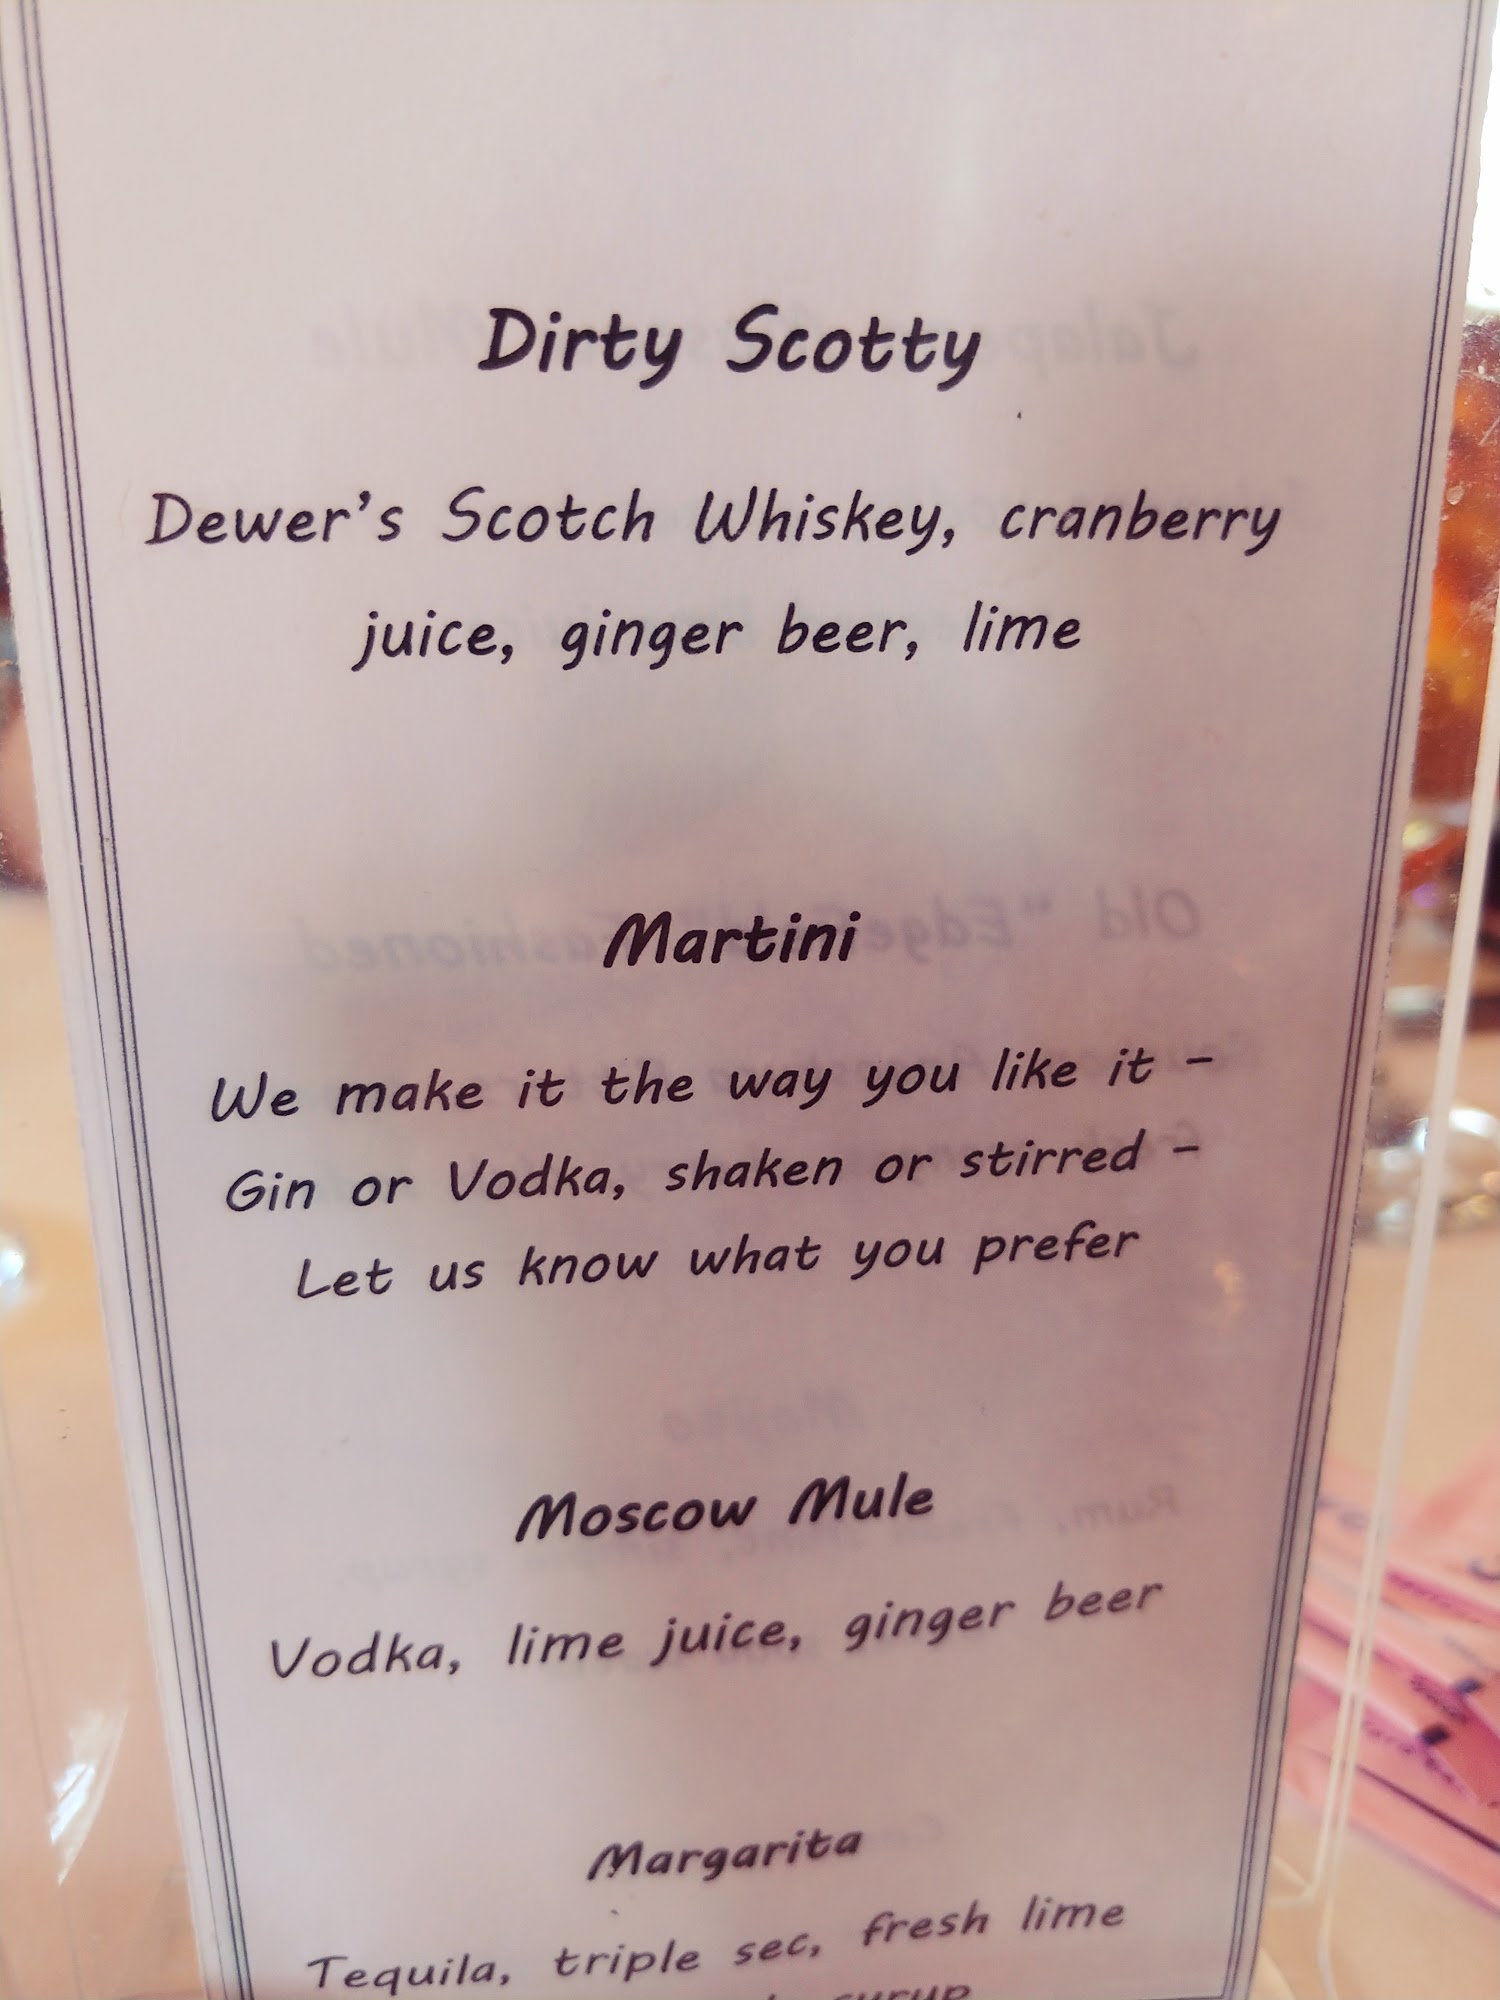 Dirty Scotty
Dewer's Scotch Whiskey, cranberry
juice, ginger beer, lime
Martini
We make it the way you like it -
Gin or Vodka, shaken or stirred -
Let us know what you prefer
Moscow Mule
Vodka, lime juice, ginger beer
Margarita
Tequila, triple sec, fresh lime
syrup